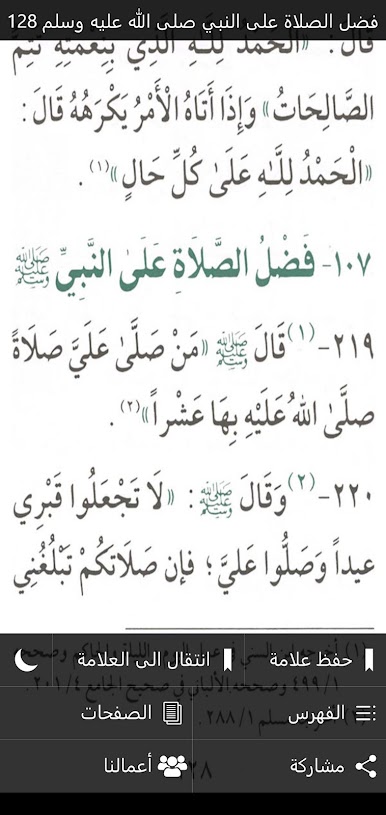 فضل الصلاة على النبي صلى الله عليه وسلم 128
قَالَ: «الْحَمْدُ لِلَّـهِ الَّذِي بِنِعْمَتِهِ تَتِمُّ
الصَّالِحَاتُ» وَإِذَا أَتَاهُ الْأَمْرُ يَكْرَهُهُ قَالَ:
«الْحَمْدُ لِلَّـهِ عَلَىٰ كُلِّ حَالٍ»(١).
١٠٧- فَضْلُ الصَّلَاةِ عَلَىٰ النَّبِيِّ ﷺ
٢١٩-(١) قَالَ ﷺ «مَنْ صَلَّىٰ عَلَيَّ صَلَاةً
صلَّىٰ اللهُ عَلَيْهِ بِهَا عَشْراً»(٢).
٢٢٠-(٢) وَقَالَ ﷺ: «لَا تَجْعَلُوا قَبْرِي
عيداً وَصَلُّوا عَليَّ؛ فإن صَلَاتَكُمْ تَبْلُغُنِي
حفظ علامة
انتقال الى العلامة
٤٩٩/١ وصححه الألباني في صحيح الجامع ٢٠١/٤.
الفهرس
الصفحات
مشاركة
أعمالنا